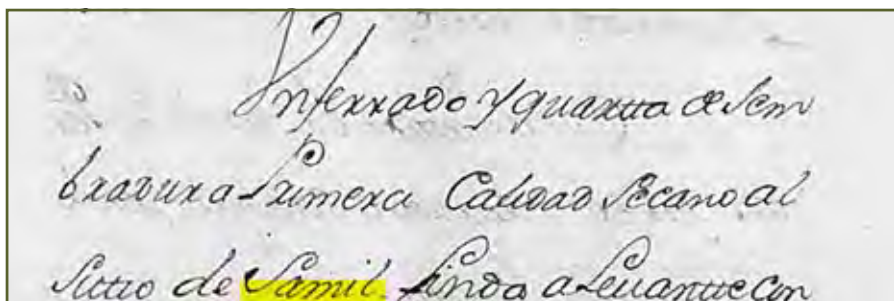 Un ferrado y quartta de sem
bradura Primera Calidad Secano al
Sittio de Samil. Linda a Levantte con